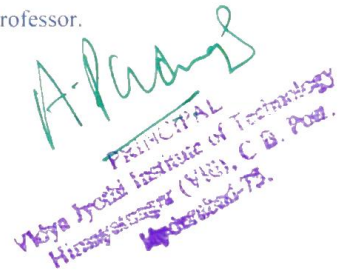 rofessor.
PRINCIPAL
Vidya Jyothi Institute of Technology
Himayatnagar (Vill), C.B. Post.
Hyderabad-75.